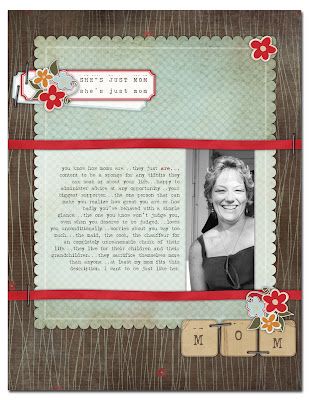 SHE'S JUST MOM
she's just mom
you know how moms are...they just are...
content to be a sponge for any tidbits they
can soak up about your life...happy to
administer advice at any opportunity...your
biggest supporter...the one person that can
make you realize how great you are or how
badly you've behaved with a single
glance...the one you know won't judge you,
even when you deserve to be judged...loves
you unconditionally...worries about you way too
much...the maid, the cook, the chauffeur for
an completely unreasonable chunk of their
life...they live for their children and their
grandchildren... they sacrifice themselves more
than anyone...at least my mom fits this
description. I want to be just like her.
MOM